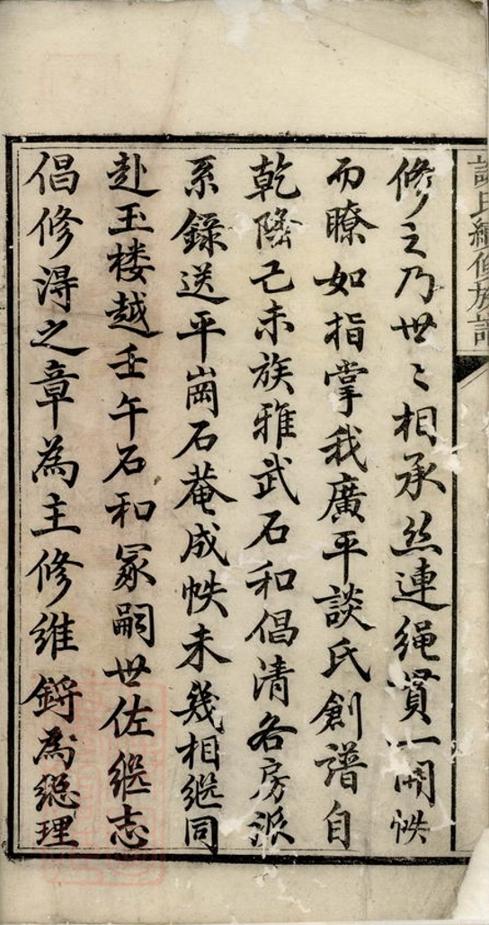 談氏續修族譜
修之乃世〻相承丝連绳貫一開帙
而瞭如指掌我廣平談氏創譜自
乾隆己未族雅武石和倡清各房派
系錄送平崗石菴成帙未幾相繼同
赴玉楼越壬午石和冢嗣世佐继志
倡修淂之章為主修维鏘為總理